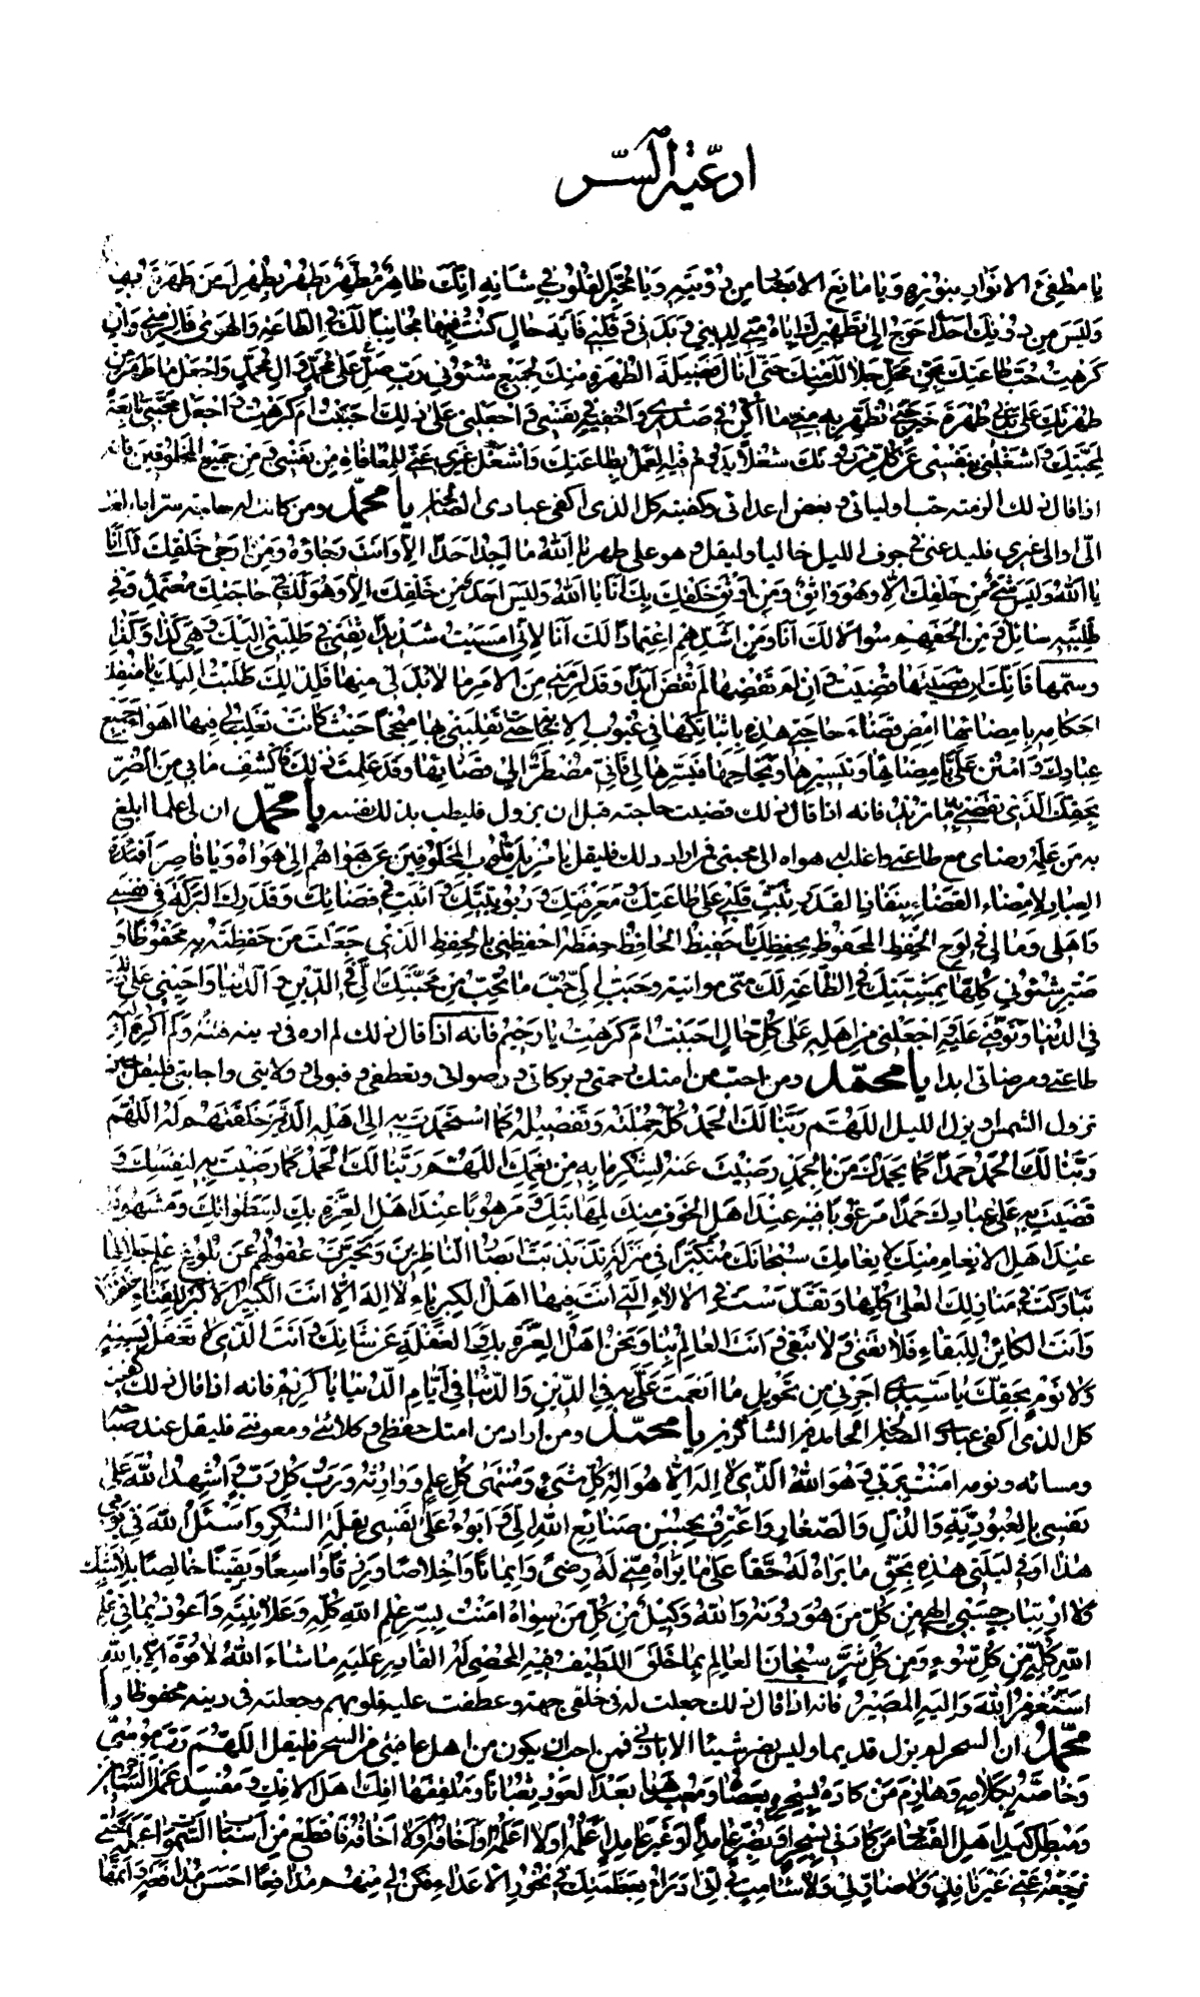 ادعية السّر
يا مطفئ الانوار بنوره ويا مانع الابصار من رؤيته ويا محيّر القلوب في شانه انك طاهر مطهّر يطهر بطهرك من طهرته بها
وليس من دونك احد احوج الى تطهيرك اياه منّي لديني وبدني وقلبي فاية حال كنت فيها مجانبا لك في الطاعة والهوى فالزمني وان
كرهت حب طاعتك بحق محل جلالك منك حتى انال فضيلة الطهرة منك لجميع شئوني رب صل على محمد وال محمد واجعل ما طهر من
طهرتك على بدني طهرة خير حتى تطهر به مني ما اكن في صدري واخفيه في نفسي واجعلني على ذلك احببت ام كرهت واجعل محبتي تابعة
لمحبتك واشغلني بنفسي عن كل من دونك شغلا يدوم فيه العمل بطاعتك واشغل غيري عني للمعافاة من نفسي ومن جميع المخلوقين فانه
اذا قال ذلك الزمته حب اوليائي وبغض اعدائي وكفيته كل الذي اكفي عبادي الصالحين يا محمّد ومن كانت له حاجة سرا بالغة
الي او الى غيري فليدعني في جوف الليل خاليا وليقل وهو على طهر يا الله ما اجد احدا الا وانت رجاؤه ومن ارجى خلقك لك انا
يا الله وليس شئ من خلقك الا وهو واثق ومن اوثق خلقك بك انا يا الله وليس احد من خلقك الا وهو لك في حاجته معتمد وفي
طلبته سائل ومن الحفهم سؤالا لك انا ومن اشدهم اعتمادا لك انا لاني امسيت شديدا ثقتي في طلبتي اليك وهي كذا وكذا
وسمّها فانك ان قضيتها قضيت وان لم تقضها لم تقض ابدا وقد لزمني من الامر ما لابد لي منها فلذلك طلبت اليك يا منفذ
احكامه بامضائها امض قضاء حاجتي هذه باثباتكها في غيوب الاجابة حتى تقلبني بها منجحا حيث كانت تغلب لي فيها اهواء جميع
عبادك وامنن علي بامضائها وتيسيرها ونجاحها فيسرها لي فاني مضطر الى قضائها وقد علمت ذلك فاكشف ما بي من الضرّ
بحقك الذي تقضي به ما تريد فانه اذا قال ذلك قضيت حاجته قبل ان يزول فليطب بذلك نفسه يا محمّد ان لي علما ابلغ
به من علمه رضاي مع طاعتي واغلب له هواه الى محبتي فمن اراد ذلك فليقل يا مزيل قلوب المخلوقين عن هواهم الى هواه ويا قاصر افئدة
العباد لامضاء القضاء بنفاذ القدر ثبت قلبي على طاعتك ومعرفتك وربوبيتك واثبت في قضائك وقدرك البركة في نفسي
واهلي ومالي في لوح الحفظ المحفوظ بحفظك يا حفيظ الحافظ حفظه احفظني بالحفظ الذي جعلت من حفظته به محفوظا و
صيّر شئوني كلها بمشيتك في الطاعة لك مني مواتية وحبب الي حب ما تحب من محبتك الي في الدين والدنيا واحيني على ذلك
في الدنيا وتوفني عليه واجعلني من اهله على كل حال احببت ام كرهت يا رحيم فانه اذا قال ذلك لم اره في دينه فتنة ولم اكره اليه
طاعتي ومرضاتي ابدا يا محمّد ومن احب من امتك رحمتي وبركاتي ورضواني وتعطفي وقبولي وولايتي واجابتي فليقل حين
تزول الشمس او يزول الليل اللهم ربنا لك الحمد كله جملته وتفصيله كما استحمدت به الى اهله الذين خلقتهم له اللهم
ربنا لك الحمد حمدا كما يحمدك من بالحمد رضيت عنه لشكر ما به من نعمك اللهم ربنا لك الحمد كما رضيت به لنفسك و
قضيت به على عبادك حمدا مرغوبا فيه عند اهل الخوف منك لمهابتك ومرهوبا عند اهل العزة بك لسطواتك ومشهودا
عند اهل الانعام منك لانعامك سبحانك متكبرا في منزلة تذبذبت ابصار الناظرين وتحيرت عقولهم عن بلوغ علم جلالها
تباركت في منازلك العلى كلها وتقدست في الالاء التي انت فيها اهل الكبرياء لا اله الا انت الكبير الاكبر للفناء خلقتنا
وانت الكائن للبقاء فلا تفنى ولا نبقى وانت العالم بنا ونحن اهل العزة بك والغفلة عن شانك وانت الذي لا تغفل بسنة
ولا نوم بحقك يا سيدي اجرني من تحويل ما انعمت علي به في الدين والدنيا في ايام الدنيا يا كريم فانه اذا قال ذلك كفيته
كل الذي اكفي عبادي الصالحين الحامدين الشاكرين يا محمّد ومن اراد من امتك حفظي وكلائتي ومعونتي فليقل عند صباحه
ومسائه ونومه امنت بربي وهو الله الذي لا اله الا هو اله كل شئ ومنتهى كل علم ووارثه ورب كل رب واشهد الله على
نفسي بالعبودية والذل والصغار واعترف بحسن صنايع الله الي وابوء على نفسي بقلة الشكر واسئل الله في يومي
هذا او في ليلتي هذه بحق ما يراه له حقا على ما يراه مني له رضى وايمانا واخلاصا ورزقا واسعا ويقينا خالصا بلا شك
ولا ارتياب حسبي الهي من كل من هو دونه والله وكيلي من كل من سواه امنت بسر علم الله كله وعلانيته واعوذ بما في علم
الله كله من كل سوء ومن كل شر سبحان العالم بما خلق اللطيف فيه المحصي له القادر عليه ما شاء الله لا قوة الا بالله
استغفر الله واليه المصير فانه اذا قال ذلك جعلت له في خلقي جهة وعطفت عليه قلوبهم وجعلته في دينه محفوظا يا
محمّد ان السحر لم يزل قديما وليس يضر شيئا الا باذني فمن احب ان يكون من اهل عافيتي من السحر فليقل اللهم رب موسى
وخاصه بكلامه وهازم من كاده بسحره بعصاه ومعيدها بعد العود ثعبانا وملقفها افك اهل الافك ومفسد عمل الساحرين
ومبطل كيد اهل الفساد من كادني بسحر او بضر عامدا او غير عامد اعلمه او لا اعلمه واخافه او لا اخافه فاقطع من اسباب السموات عمله حتى
ترجعه عني غير نافذ ولا ضار لي ولا شامت بي اني ادرأ بعظمتك في نحور الاعداء فكن لي منهم مدافعا احسن مدافعة واتمها